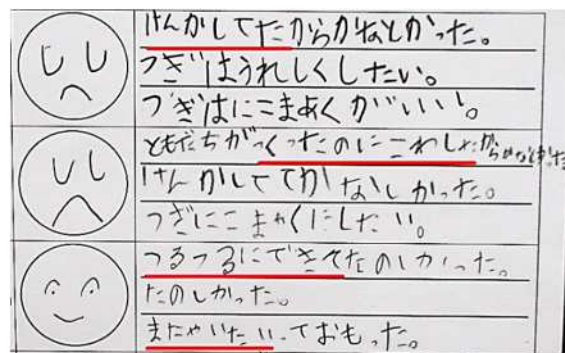 けんかしてたからかなしかった。
つぎはうれしくしたい。
つぎはにこまあくがいいい。
ともだちがつくったのにこわしたからかなしかった
けんかしてかなしかった。
つぎにこまゃくにしたい。
つるつるにできてたのしかった。
たのしかった。
またやいたいっておもった。